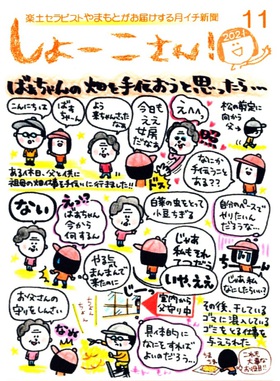 楽土セラピストやまもとがお届けする月イチ新聞
しょーこさん!
2021
11
ばあちゃんの畑を手伝おうと思ったら…
こんにちは
ばぁちゃーん
よう来ちゃんさったなぁ
今日もええ女房だなぁ
えへへっ
松の剪定に向かう父
ある休日、父と供に祖母の畑仕事を手伝いに行きました!!
なにか手伝うことある??
ない
えっ?ばあちゃん今から何するん
白菜の虫をとって小豆ちぎる
自分のペースでやりたいんだろうな…
やる気まんまんで来たのに
じゃあ私もそれやーるでぇ
いや、ええ
じゃあ私、なにしたらいい?
お父さんの守りをしんさい
室内から父守り中
その後、干しているゴミに混入しているゴミをとる仕事を与えられた
なぬ
具体的になにをすればよいのだろう…
これも大事なお仕事!!